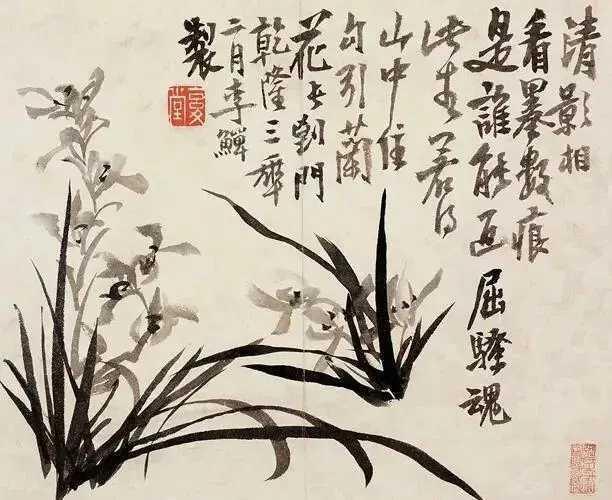 清影相
看墨數痕
是誰能返屈騷魂
此生若得
山中住
勾引蘭
花到門
乾隆三年
二月李鱓
製